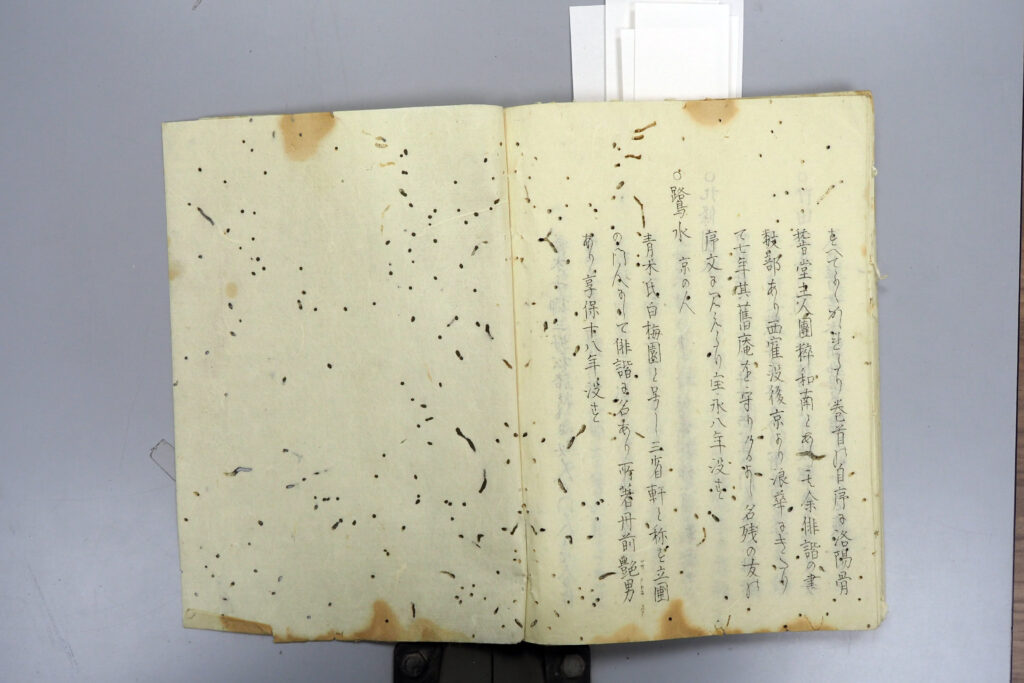 巻首の自序に洛陽骨
誓堂主人團粹和南とあり 其余俳諧の書
数部あり西寉没後京より浪華にきたり
て七年其舊庵を守りゐるよし名残の友の
序文に見えたり宝永八年没す
○鷺水 京の人
青木氏白梅園と号し三省軒と称す立圃
の門人にして俳諧に名あり所著丹前艶男
あり享保十八年没す